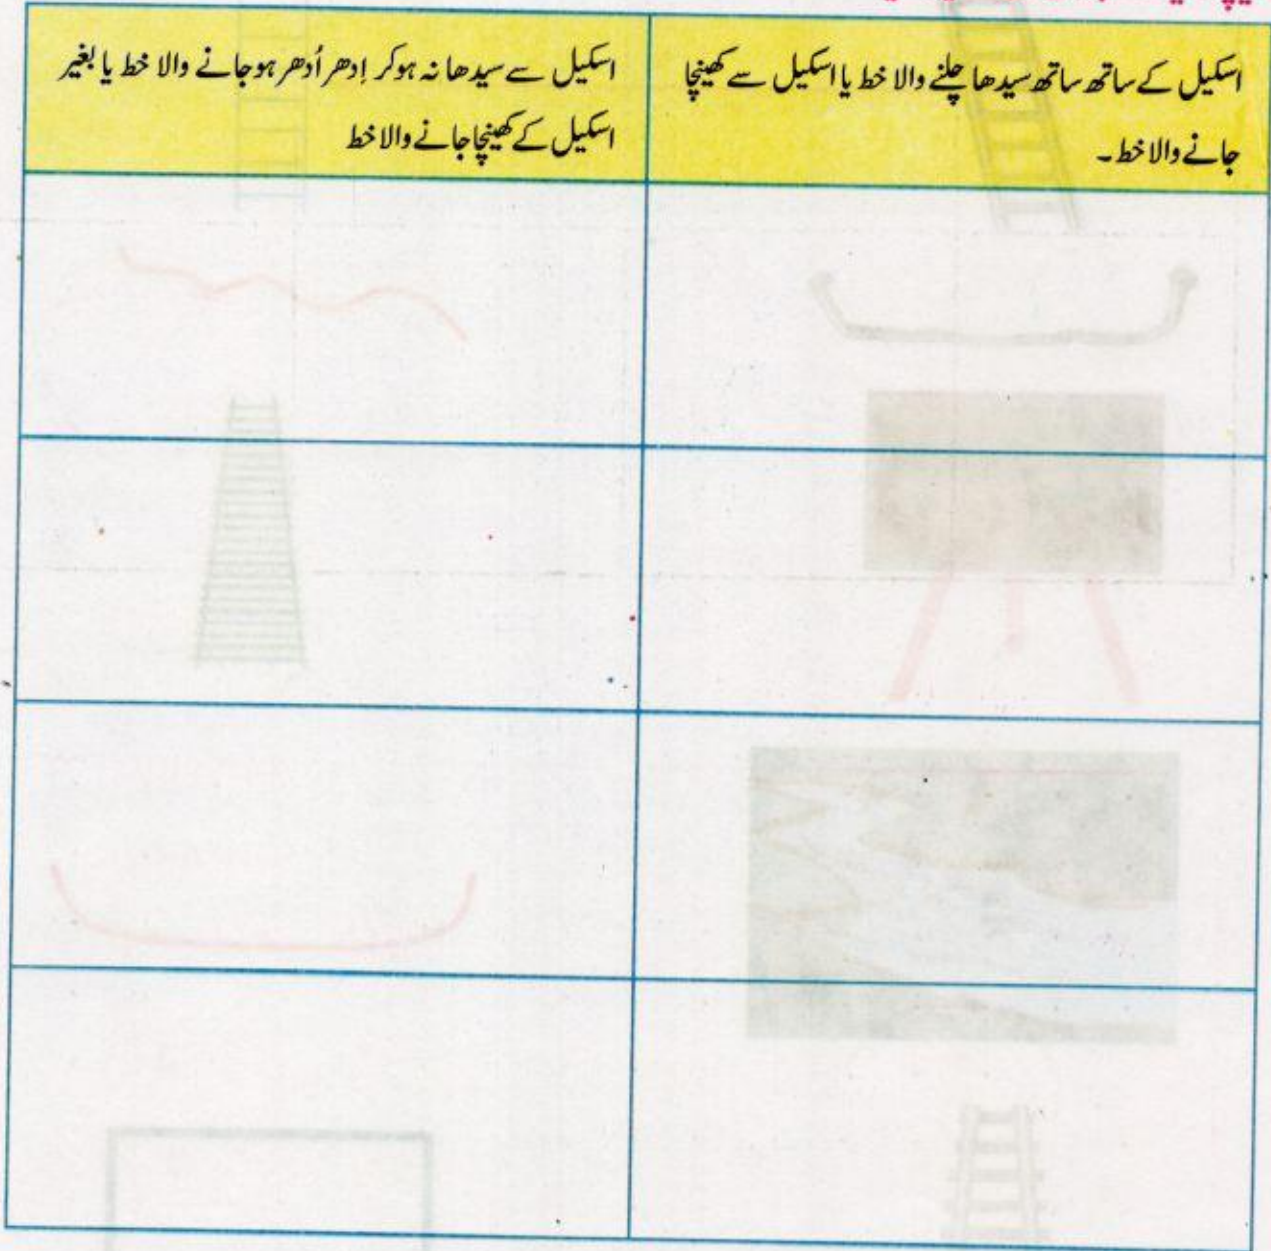 اسکیل کے ساتھ ساتھ سیدھا چلنے والا خط یا اسکیل سے کھینچا
جانے والا خط۔
اسکیل سے سیدھا نہ ہوکر اِدھر اُدھر ہوجانے والا خط یا بغیر
اسکیل کے کھینچا جانے والا خط